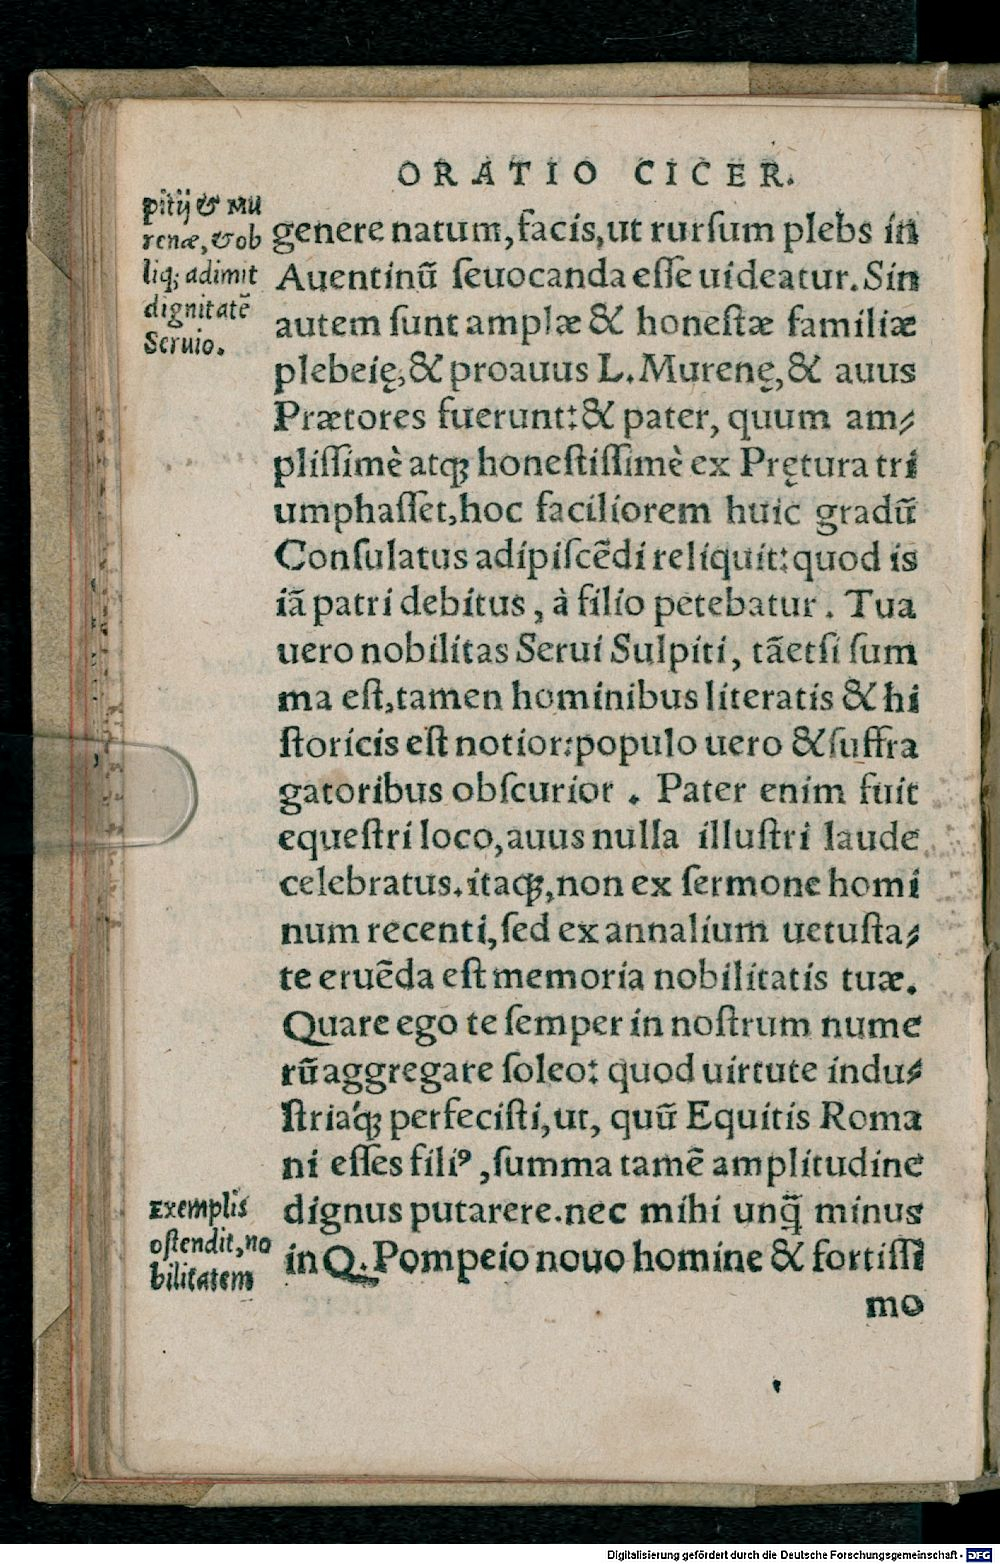 ORATIO CICER.
pitij & Mu
renæ, & ob
liq; adimit
dignitatē
Seruio.
genere natum, facis, ut rursum plebs in
Auentinū seuocanda esse uideatur. Sin
autem sunt amplæ & honestæ familiæ
plebeię, & proauus L. Murenę, & auus
Prætores fuerunt: & pater, quum am⸗
plissimè atq; honestissimè ex Prętura tri
umphasset, hoc faciliorem huic gradū
Consulatus adipiscēdi reliquit: quod is
iā patri debitus, à filio petebatur. Tua
uero nobilitas Serui Sulpiti, tāetsi sum
ma est, tamen hominibus literatis & hi
storicis est notior: populo uero & suffra
gatoribus obscurior. Pater enim fuit
equestri loco, auus nulla illustri laude
celebratus. itaq;, non ex sermone homi
num recenti, sed ex annalium uetusta⸗
te eruēda est memoria nobilitatis tuæ.
Quare ego te semper in nostrum nume
rū aggregare soleo: quod uirtute indu⸗
striaq́; perfecisti, ut, quū Equitis Roma
ni esses filiꝰ, summa tamē amplitudine
dignus putarere. nec mihi unq̄ minus
in Q. Pompeio nouo homine & fortissi
mo
Exemplis
ostendit, no
bilitatem
Digitalisierung gefördert durch die Deutsche Forschungsgemeinschaft - DFG